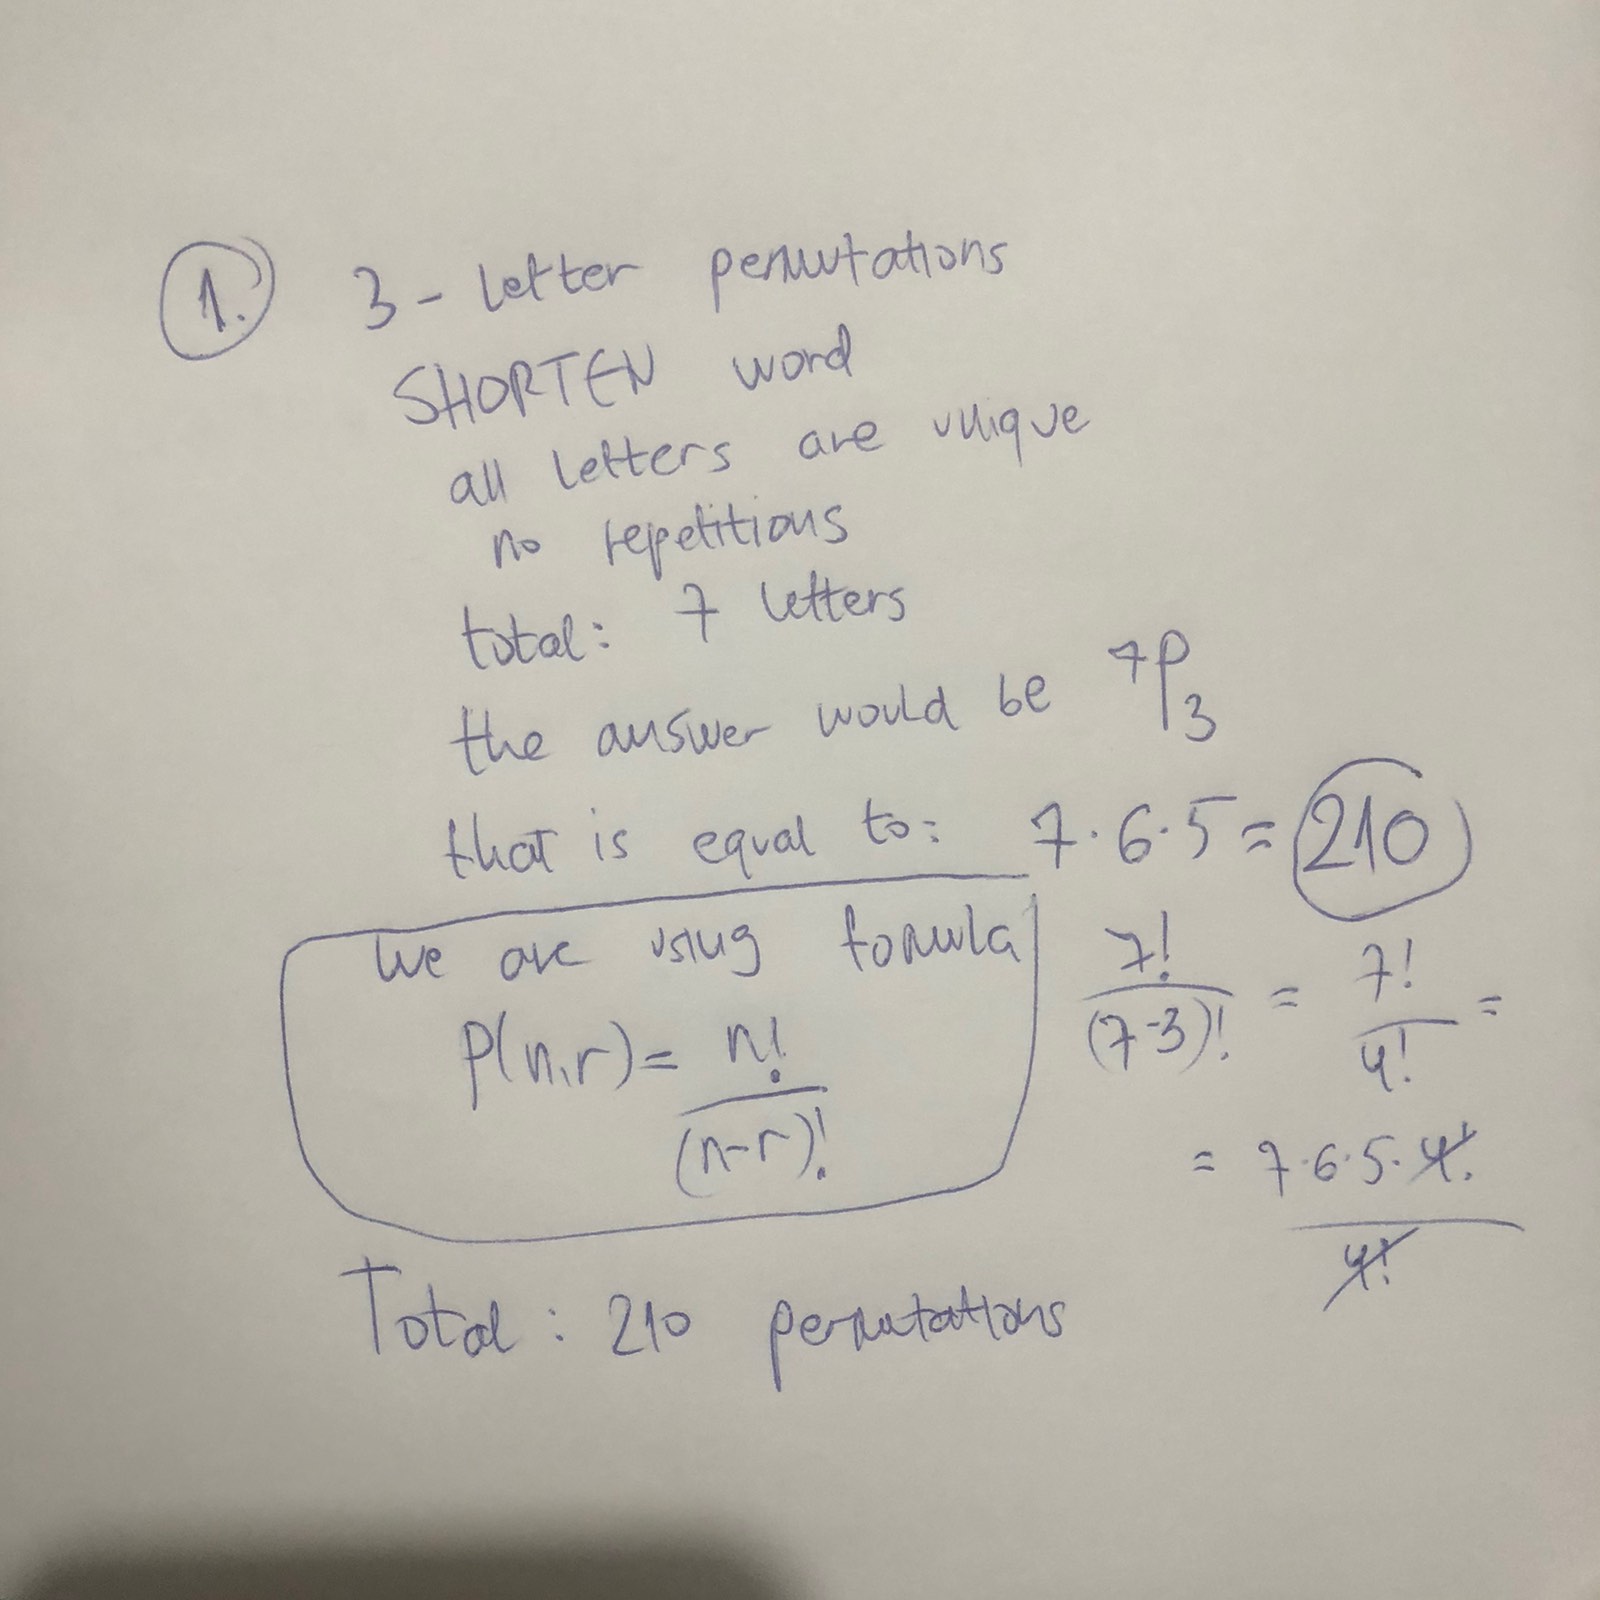 1. 3-letter permutations
SHORTEN word
all letters are unique
no repetitions
total: 7 letters
the answer would be ⁷P₃
that is equal to: 7·6·5 = 210
We are using formula
P(n,r) = n!/(n-r)!
7!/(7-3)! = 7!/4! =
= 7·6·5·4!/4!
Total: 210 permutations